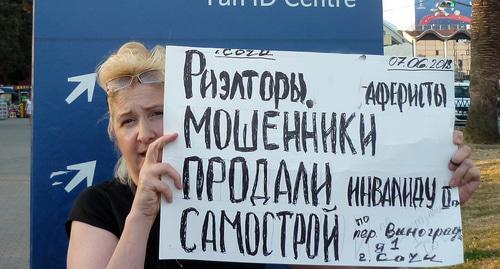 Fan ID Centre
г.Сочи
07.06.2018
Риэлторы,
аферисты
МОШЕННИКИ
ПРОДАЛИ инвалиду II
САМОСТРОЙ
по
пер. Виноград
91
г. Сочи